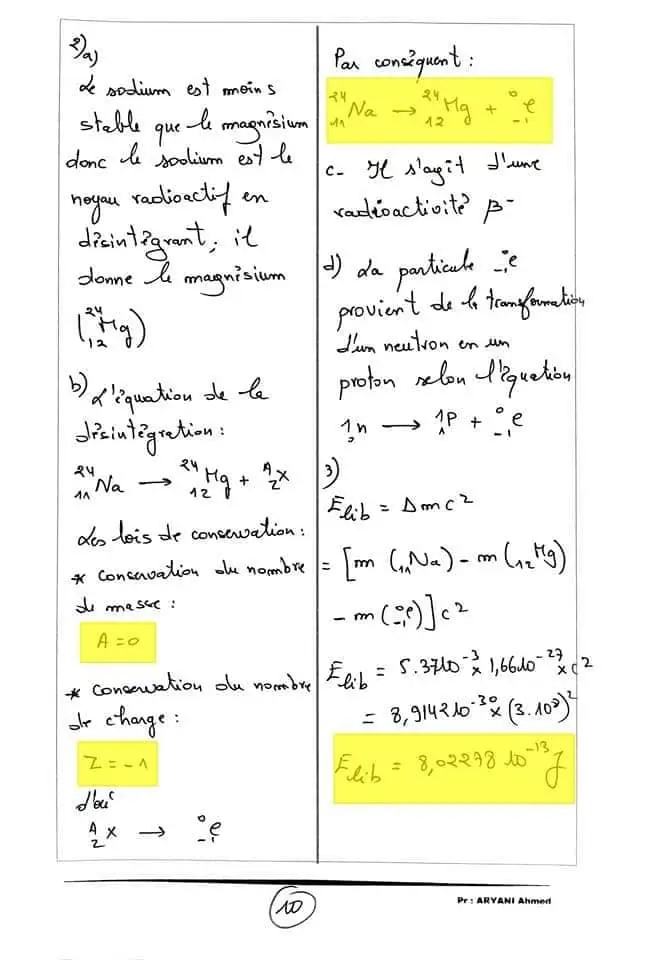 2)a)
Le sodium est moins
stable que le magnésium
donc le sodium est le
noyau radioactif en
désintégrant, il
donne le magnésium
(²⁴₁₂Mg)
b) L'équation de la
désintégration :
²⁴₁₁Na → ²⁴₁₂Mg + ᴬ_ZX
Les lois de conservation :
* conservation du nombre
de masse :
A = 0
* conservation du nombre
de charge :
Z = -1
d'où
ᴬ_ZX → ⁰₋₁e
Par conséquent :
²⁴₁₁Na → ²⁴₁₂Mg + ⁰₋₁e
c- Il s'agit d'une
radioactivité β⁻
d) La particule ₋₁⁰e
provient de la transformation
d'un neutron en un
proton selon l'équation
¹₀n → ¹₁P + ⁰₋₁e
3)
E_lib = Δmc²
= [m(₁₁Na) - m(₁₂Mg)
- m(⁰₋₁e)]c²
E_lib = 5.37 10⁻³ × 1,66 10⁻²⁷ × c²
= 8,9142 10⁻³⁰ × (3.10⁸)²
E_lib = 8,02278 10⁻¹³ J
10
Pr : ARYANI Ahmed